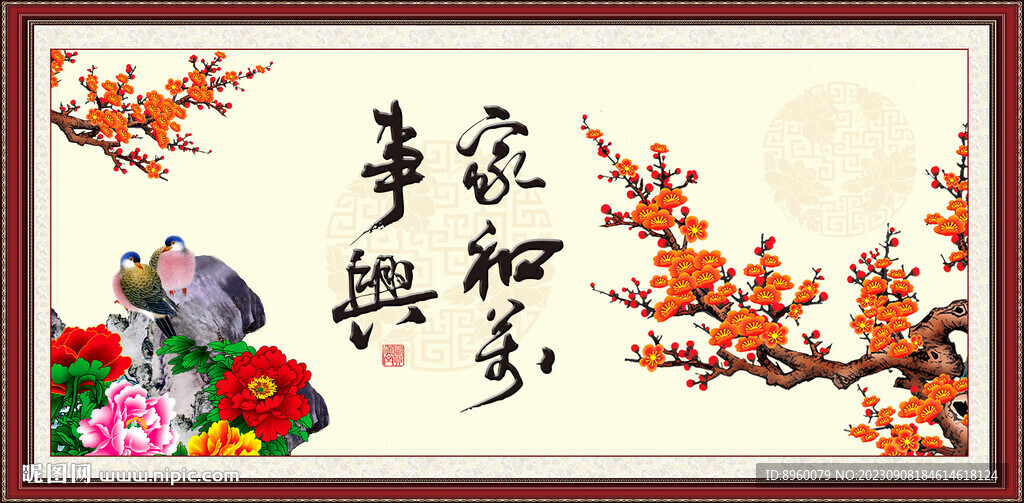 家和萬
事興
昵图网 www.nipic.com
ID:8960079 NO:20230908184614618124